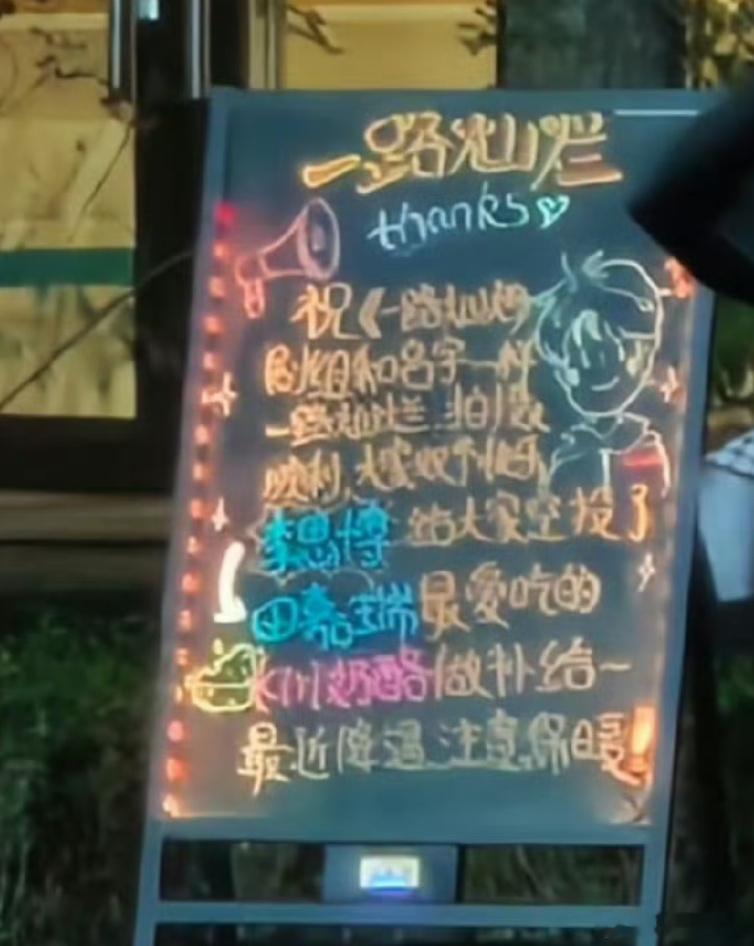 一路灿烂
thanks
祝《一路灿烂
剧组和名字一样
一路灿烂 拍摄
顺利,大家收工
李昀博 给大家空投了
田嘉瑞最爱吃的
奶酪做补给~
最近降温 注意保暖